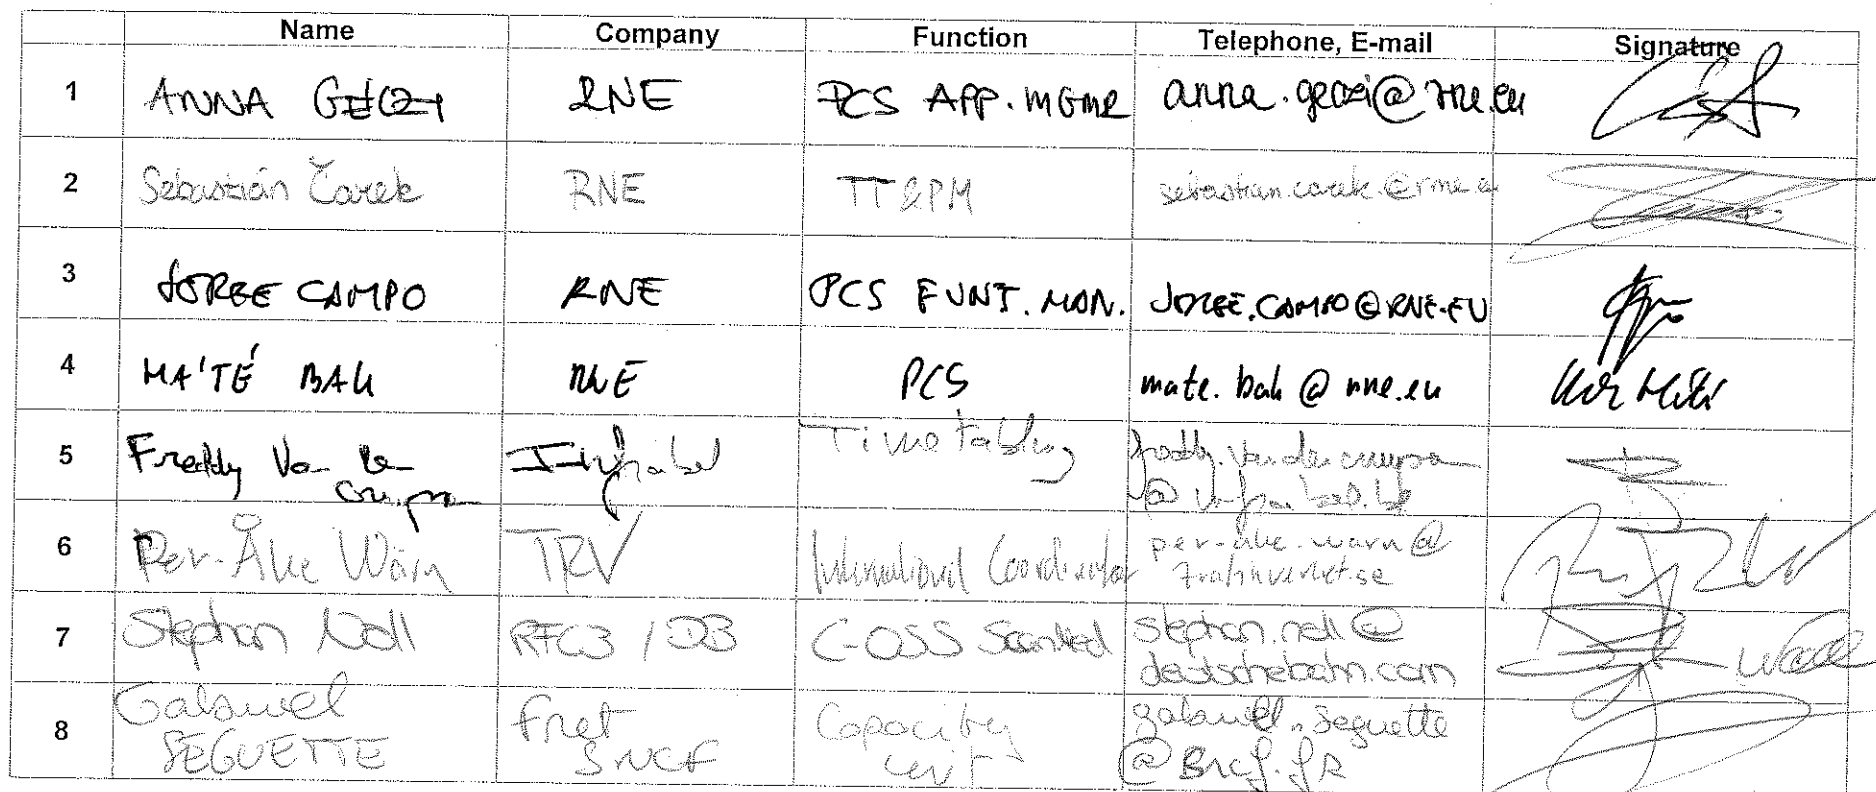 Name Company Function Telephone, E-mail Signature
1 ANNA RNE PCS APP. MGMR anna.geczi@rne.eu
2 Sebastián Čarek RNE TT&PM sebastian.carek@rne.eu
3 JORGE CAMPO RNE PCS FUNT. MAN. JORGE.CAMPO@RNE.EU
4 MÁTÉ BAK RNE PCS mate.bak@rne.eu
5 Freddy Van Infrabel Timetabling
@infrabel.be
6 Per-Åke Wärn TRV International Coordinator per-ake.warn@
trafikverket.se
7 Stephan Noll RFC3 / DB C-OSS ScanMed stephan.noll@
deutschebahn.com
8 Fret Capacity
SEGUETTE SNCF